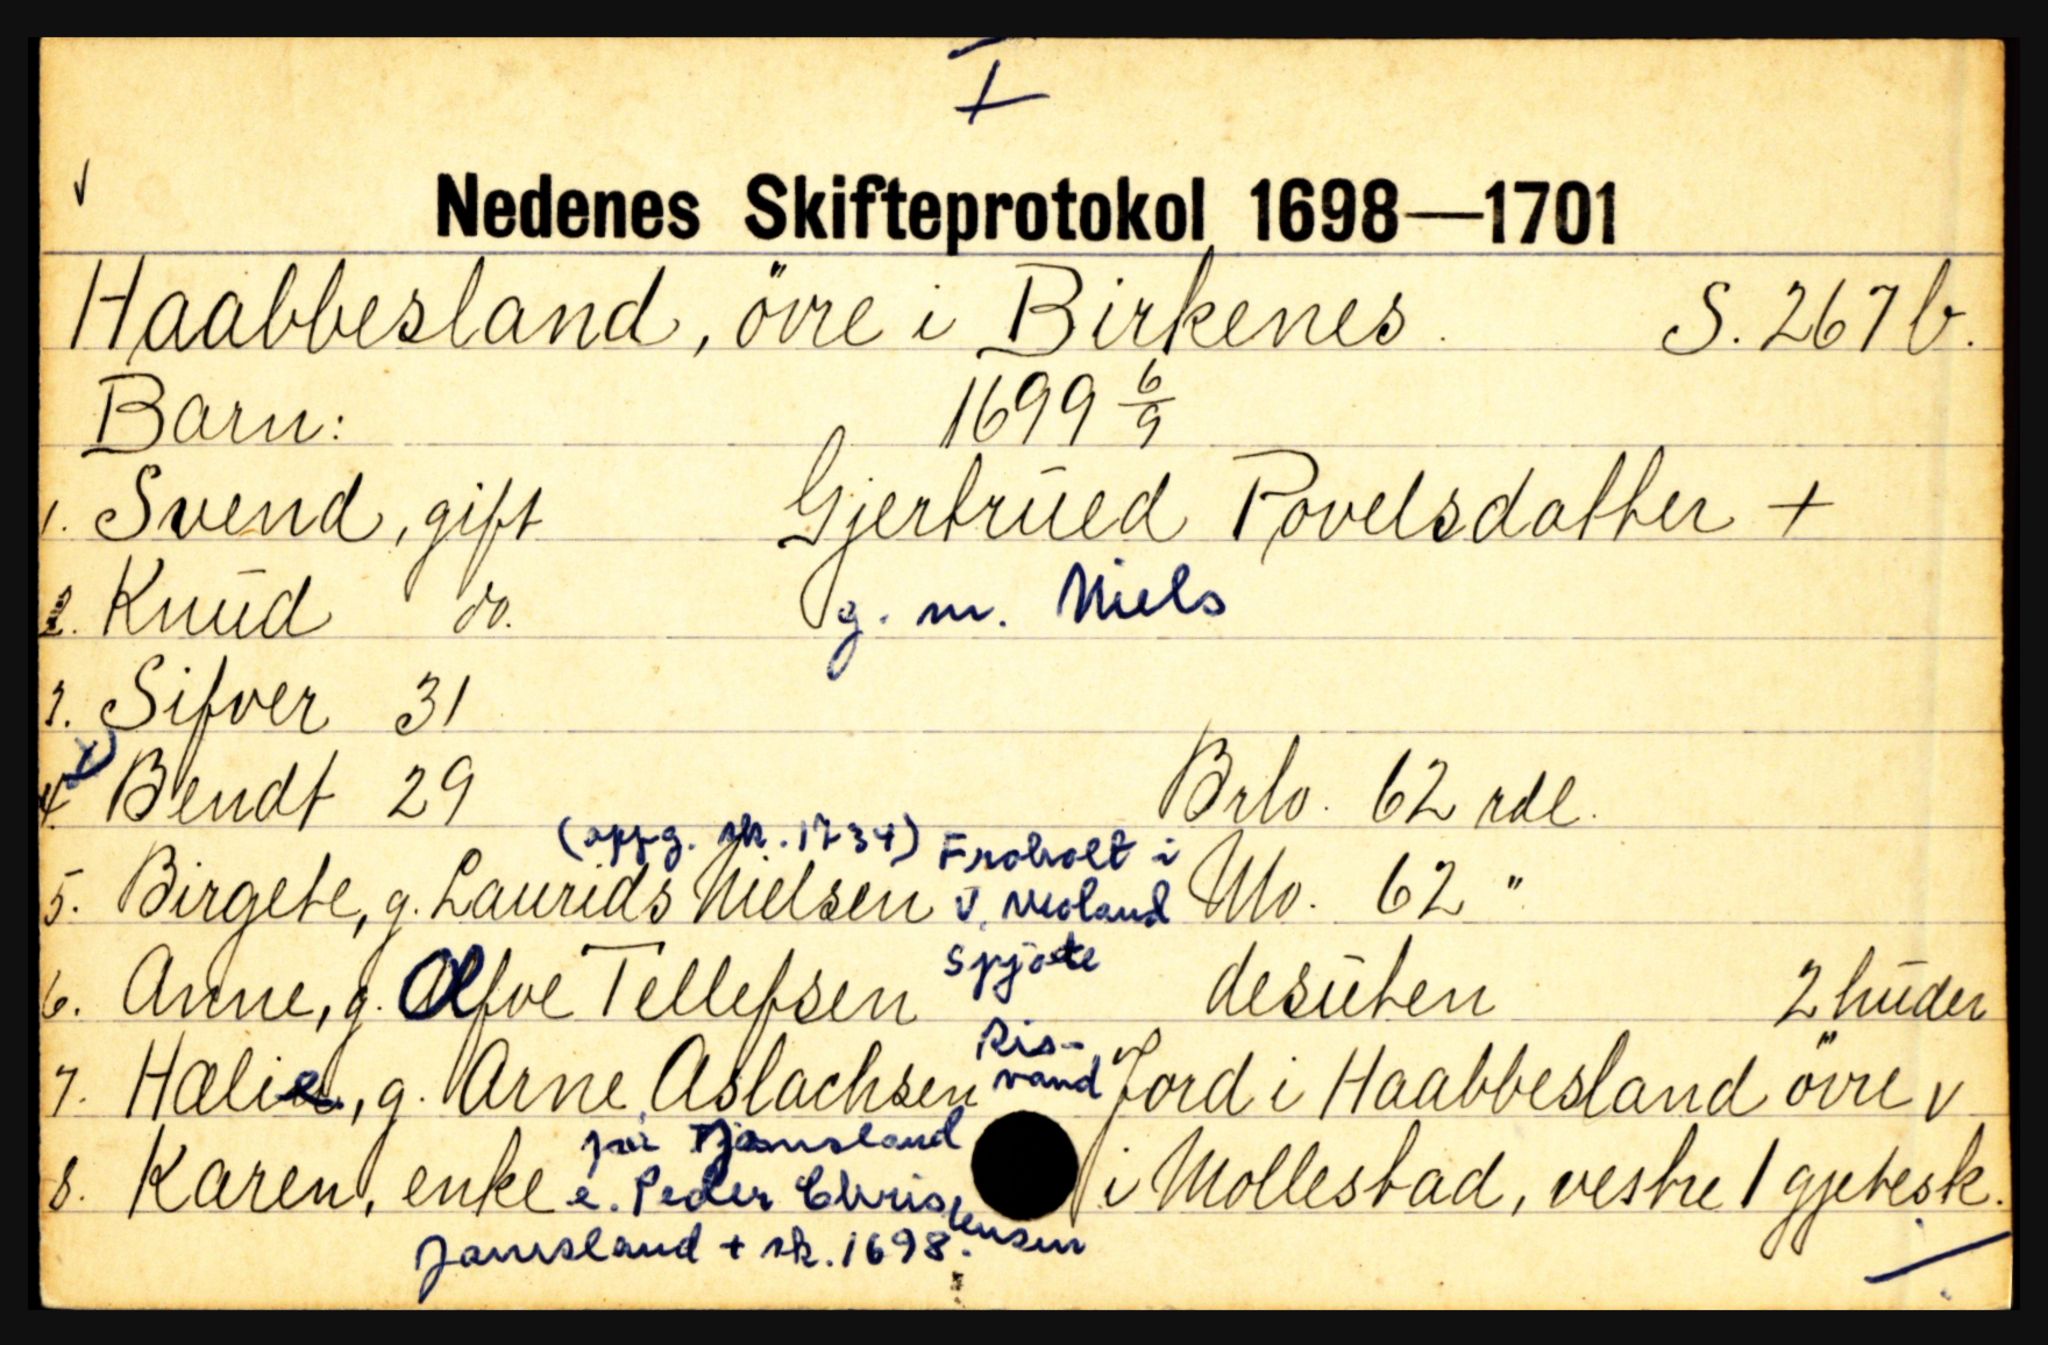 I
Nedenes Skifteprotokol 1698—1701
Haabbesland, övre i Birkenes. S. 267 b.
Barn: 1699 6/9
1. Svend, gift Gjertrued Povelsdatter +
2. Knud do. g. m. Niels
3. Sifver 31
4. Bendt 29 Brlo. 62 rdl.
(oppg. sk. 1734) Froholt i
5. Birgete, g. Laurids Nielsen V. Moland Mo. 62 "
Spjote
6. Anne, g. Olfve Tellefsen desuten 2 huder
Ris-
7. Hælie, g. Arne Aslachsen vand Jord i Haabbesland övre v
på Tjomsland
8. Karen, enke e. Peder Christensen i Mollestad, vestre 1 gjetesk.
Jomsland + sk. 1698.